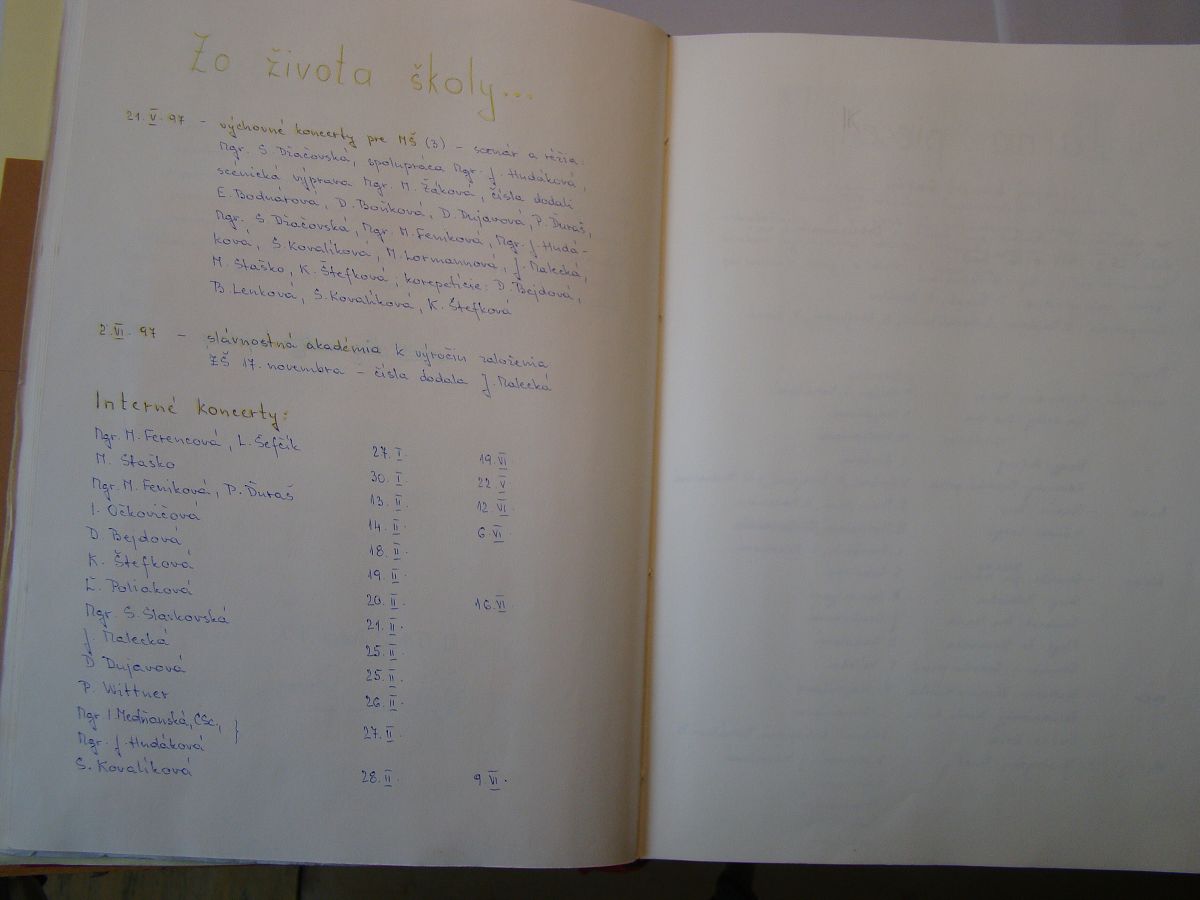 Zo života školy...
21.V.97 - výchovné koncerty pre MŠ (3) - scenár a réžia:
Mgr. S. Dračovská, spolupráca Mgr. J. Hudáková,
scénická výprava Mgr. M. Žáková, čísla dodali
E. Bodnárová, D. Boňková, D. Dujavová, P. Ďuraš,
Mgr. S. Dračovská, Mgr. M. Feníková, Mgr. J. Hudá-
ková, S. Kovalíková, M. Lormannová, J. Malecká,
M. Staško, K. Štefková; korepetície: D. Bejdová,
B. Lenková, S. Kovalíková, K. Štefková
2.VI.97 - slávnostná akadémia k výročiu založenia
ZŠ 17. novembra - čísla dodala J. Malecká
Interné koncerty:
Mgr. M. Ferencová, L. Šefčík 27.I. 19.VI
M. Staško 30.I. 22.V
Mgr. M. Feníková, P. Ďuraš 13.II. 12.VI.
I. Očkovičová 14.II. 6.VI.
D. Bejdová 18.II.
K. Štefková 19.II.
Ľ. Poliaková 20.II. 16.VI
Mgr. S. Slavkovská 21.II.
J. Malecká 25.II.
D Dujavová 25.II.
P. Wittner 26.II.
Mgr I. Medňanská, CSc., } 27.II.
Mgr. J. Hudáková
S. Kovalíková 28.II. 9.VI.